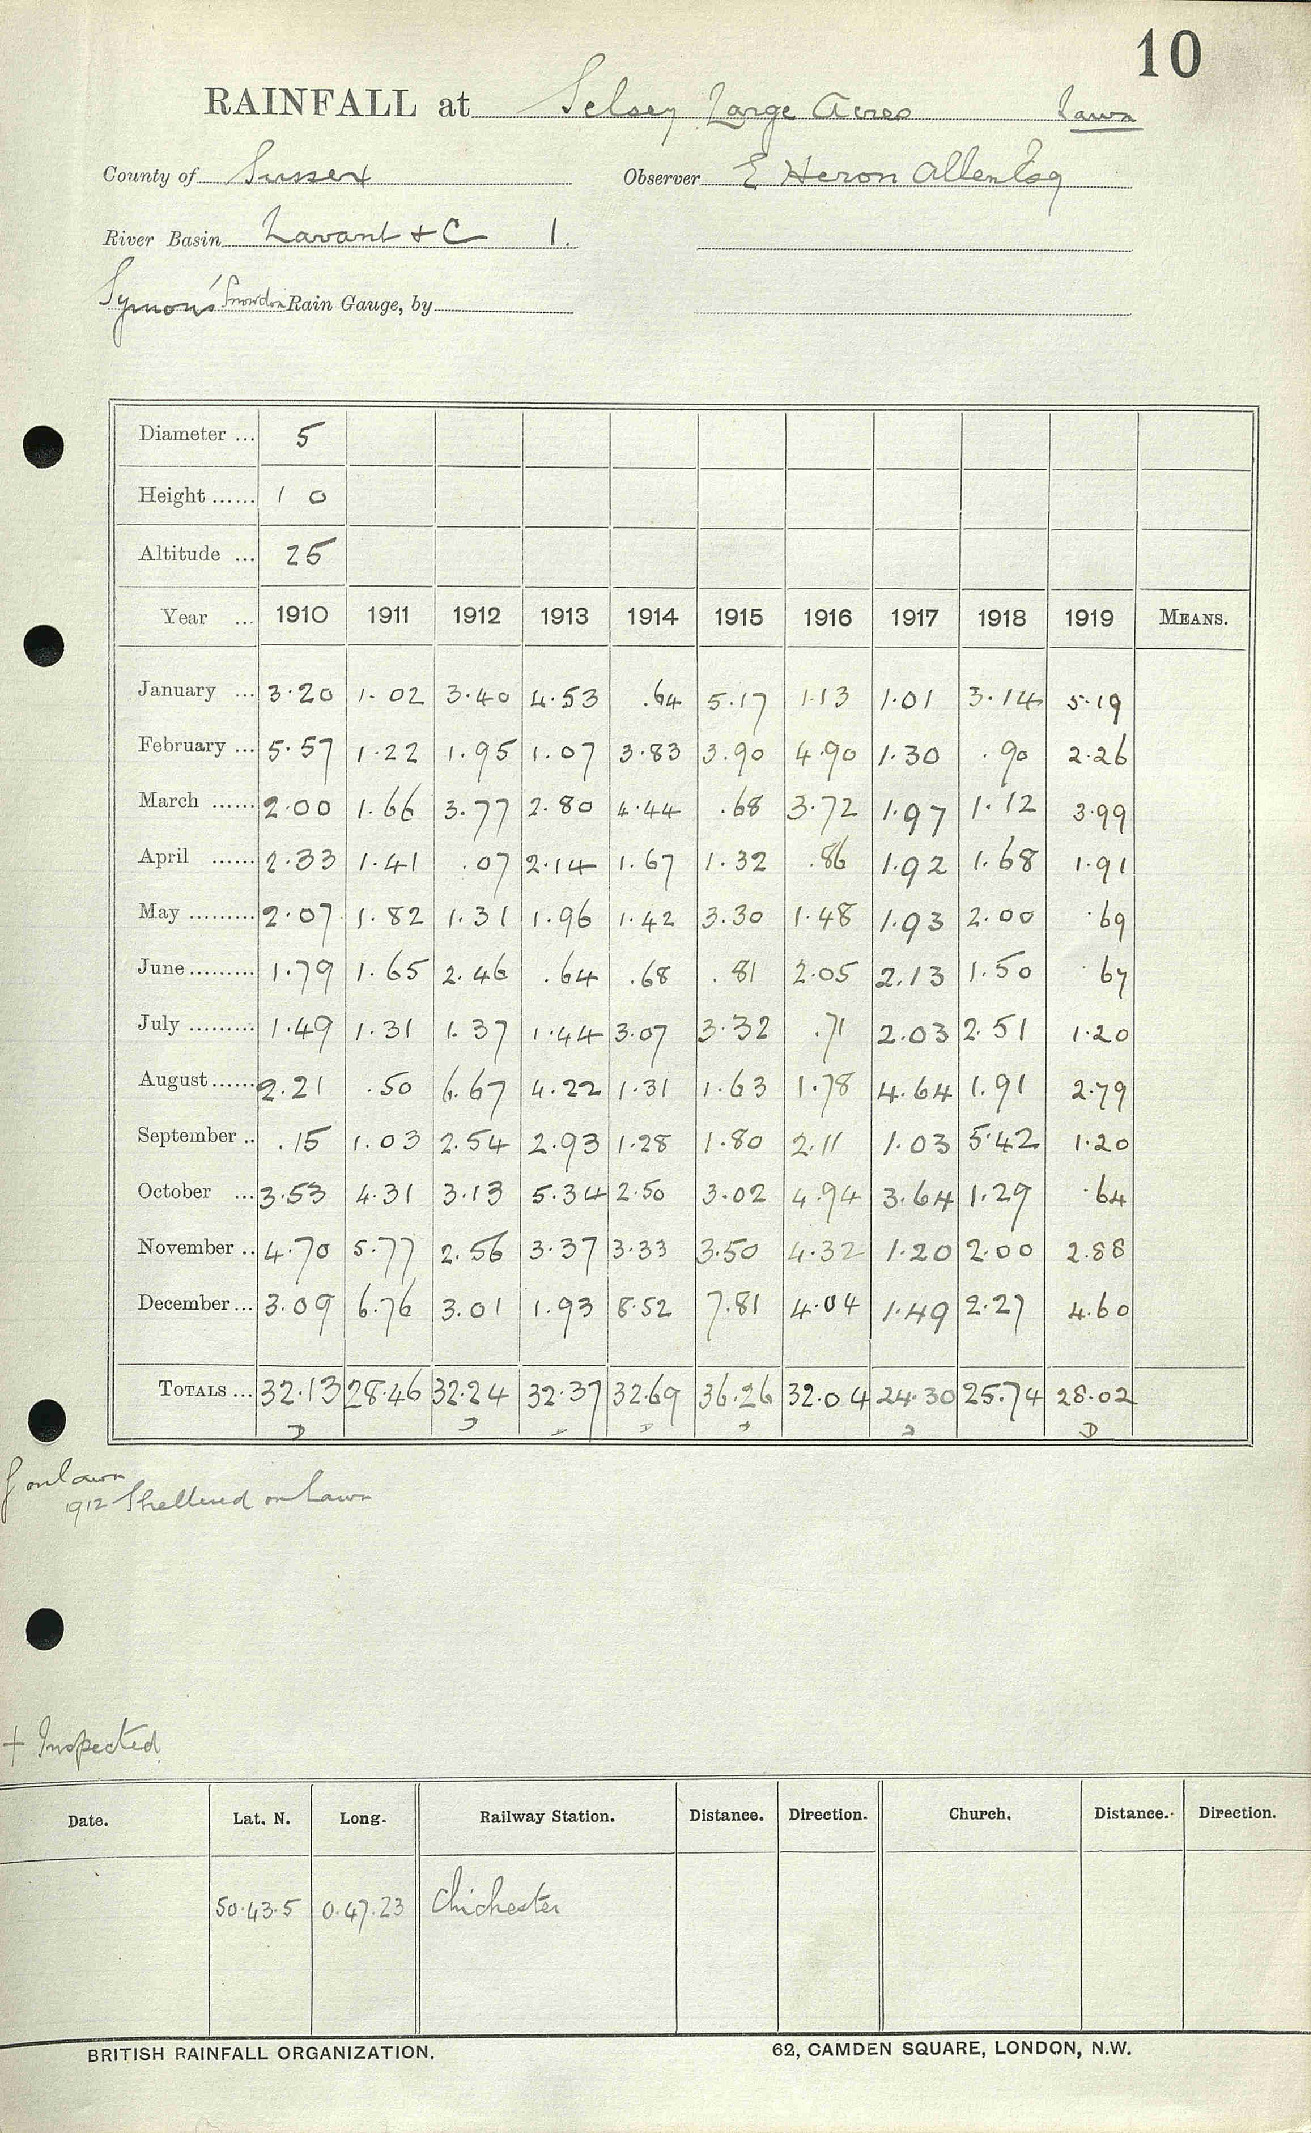 10
RAINFALL at Selsey Large Acres Lawn
County of Sussex Observer E Heron Allen Esq
River Basin Lavant + C 1.
Symons' Snowdon Rain Gauge, by
Diameter ... 5
Height ...... 1 0
Altitude ... 25
Year ... 1910 1911 1912 1913 1914 1915 1916 1917 1918 1919 MEANS.
January ... 3.20 1.02 3.40 4.53 .64 5.17 1.13 1.01 3.14 5.19
February ... 5.57 1.22 1.95 1.07 3.83 3.90 4.90 1.30 .90 2.26
March ...... 2.00 1.66 3.77 2.80 4.44 .68 3.72 1.97 1.12 3.99
April ...... 2.33 1.41 .07 2.14 1.67 1.32 .86 1.92 1.68 1.91
May ......... 2.07 1.82 1.31 1.96 1.42 3.30 1.48 1.93 2.00 .69
June ......... 1.79 1.65 2.46 .64 .68 .81 2.05 2.13 1.50 .67
July ......... 1.49 1.31 1.37 1.44 3.07 3.32 .71 2.03 2.51 1.20
August ...... 2.21 .50 6.67 4.22 1.31 1.63 1.78 4.64 1.91 2.79
September .. .15 1.03 2.54 2.93 1.28 1.80 2.11 1.03 5.42 1.20
October ... 3.53 4.31 3.13 5.34 2.50 3.02 4.94 3.64 1.29 .64
November .. 4.70 5.77 2.56 3.37 3.33 3.50 4.32 1.20 2.00 2.88
December ... 3.09 6.76 3.01 1.93 8.52 7.81 4.04 1.49 2.27 4.60
TOTALS ... 32.13 28.46 32.24 32.37 32.69 36.26 32.04 24.30 25.74 28.02
on Lawn
1912 Sheltered on Lawn
+ Inspected
Date. Lat. N. Long. Railway Station. Distance. Direction. Church. Distance. Direction.
50.43.5 0.47.23 Chichester
BRITISH RAINFALL ORGANIZATION. 62, CAMDEN SQUARE, LONDON, N.W.